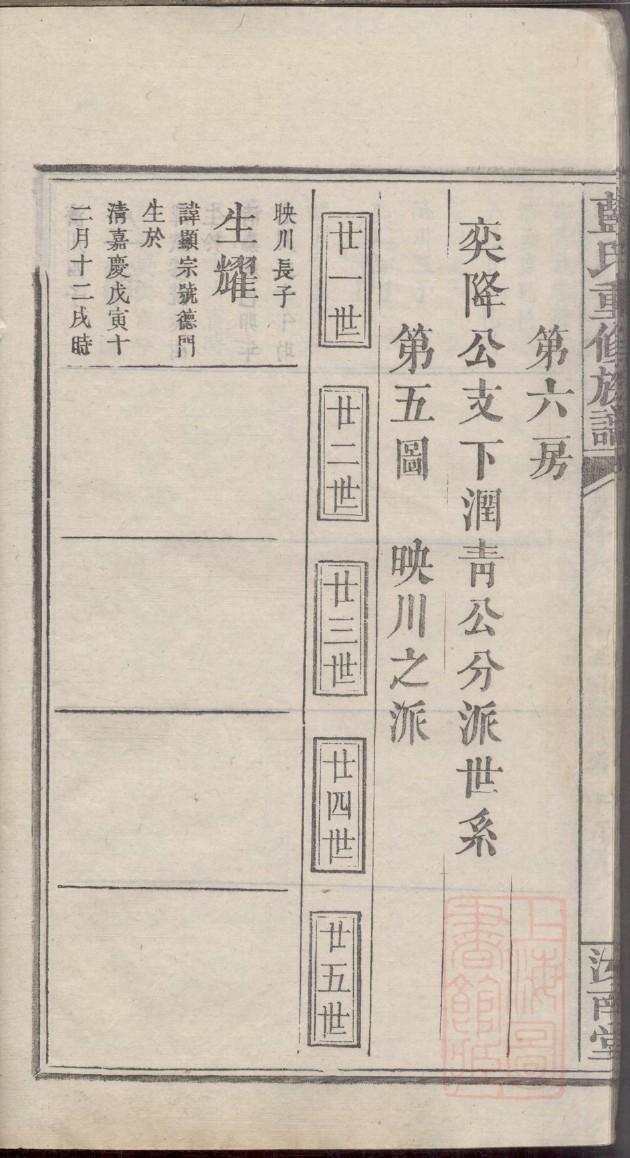 藍氏重修族譜
汝南堂
第六房
奕降公支下潤青公分派世系
第五圖　映川之派
廿一世
廿二世
廿三世
廿四世
廿五世
映川長子
生耀
諱顯宗號德門
生於
清嘉慶戊寅十
二月十二戌時
上海圖
書館藏